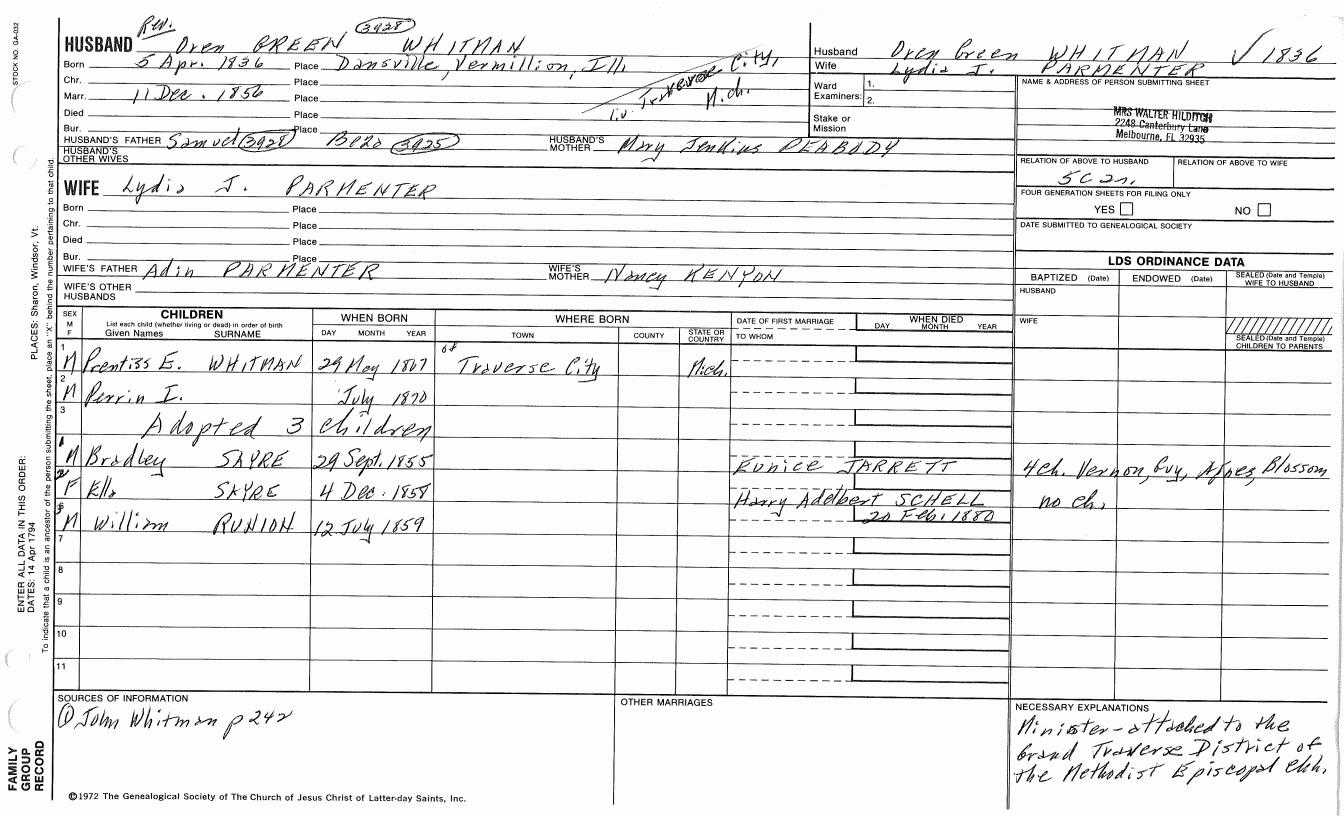 STOCK NO. GA-032
Rev. 3928
HUSBAND Oren GREEN WHITMAN
Born 5 Apr. 1836 Place Dansville, Vermillion, Ill.
Chr. Place
liv. Traverse City, Mich.
Marr. 11 Dec. 1856 Place
Died Place
Bur. Place
HUSBAND'S FATHER Samuel 3928 Beza 3925 HUSBAND'S MOTHER Mary Jenkins PEABODY
HUSBAND'S OTHER WIVES
Husband Oren Green WHITMAN √ 1836
Wife Lydia J. PARMENTER
Ward Examiners: 1.
2.
Stake or Mission
NAME & ADDRESS OF PERSON SUBMITTING SHEET
MRS WALTER HILDITCH
2248 Canterbury Lane
Melbourne, FL 32935
RELATION OF ABOVE TO HUSBAND RELATION OF ABOVE TO WIFE
5C 2r.
FOUR GENERATION SHEETS FOR FILING ONLY
YES NO
DATE SUBMITTED TO GENEALOGICAL SOCIETY
WIFE Lydia J. PARMENTER
Born Place
Chr. Place
Died Place
Bur. Place
WIFE'S FATHER Adin PARMENTER WIFE'S MOTHER Nancy KENYON
WIFE'S OTHER HUSBANDS
LDS ORDINANCE DATA
BAPTIZED (Date) ENDOWED (Date) SEALED (Date and Temple) WIFE TO HUSBAND
HUSBAND
WIFE
SEALED (Date and Temple) CHILDREN TO PARENTS
SEX M F
CHILDREN
List each child (whether living or dead) in order of birth
Given Names SURNAME
WHEN BORN
DAY MONTH YEAR
WHERE BORN
TOWN COUNTY STATE OR COUNTRY
DATE OF FIRST MARRIAGE
TO WHOM
WHEN DIED
DAY MONTH YEAR
1 M Prentiss E. WHITMAN 29 May 1867 of Traverse City Mich.
2 M Perrin I. July 1870
3 Adopted 3 children
1 M Bradley SAYRE 29 Sept. 1855 Eunice JARRETT 4 ch. Vernon, Guy, Agnes, Blossom
2 F Ella SAYRE 4 Dec. 1858 Harry Adelbert SCHELL no ch.
3 M William RUNION 12 July 1859 20 Feb. 1880
7
8
9
10
11
SOURCES OF INFORMATION
① John Whitman p 242
OTHER MARRIAGES
NECESSARY EXPLANATIONS
Minister - attached to the
Grand Traverse District of
the Methodist Episcopal Chh.
©1972 The Genealogical Society of The Church of Jesus Christ of Latter-day Saints, Inc.
PLACES: Sharon, Windsor, Vt.
ENTER ALL DATA IN THIS ORDER:
DATES: 14 Apr 1794
To indicate that a child is an ancestor of the person submitting the sheet, place an "X" behind the number pertaining to that child.
FAMILY
GROUP
RECORD